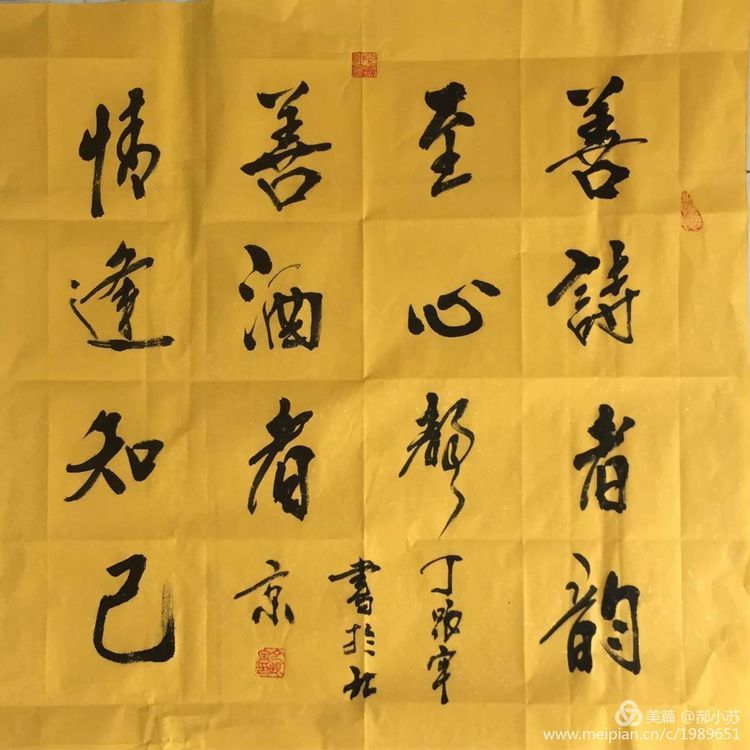 善詩者韵
至心聲
丁
善酒者
書於北
京
情逢知己
美篇 @郝小苏
www.meipian.cn/c/1989651